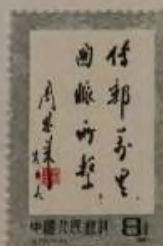 传邦万里，
国脉所系。
周恩来
中国人民邮政 8分